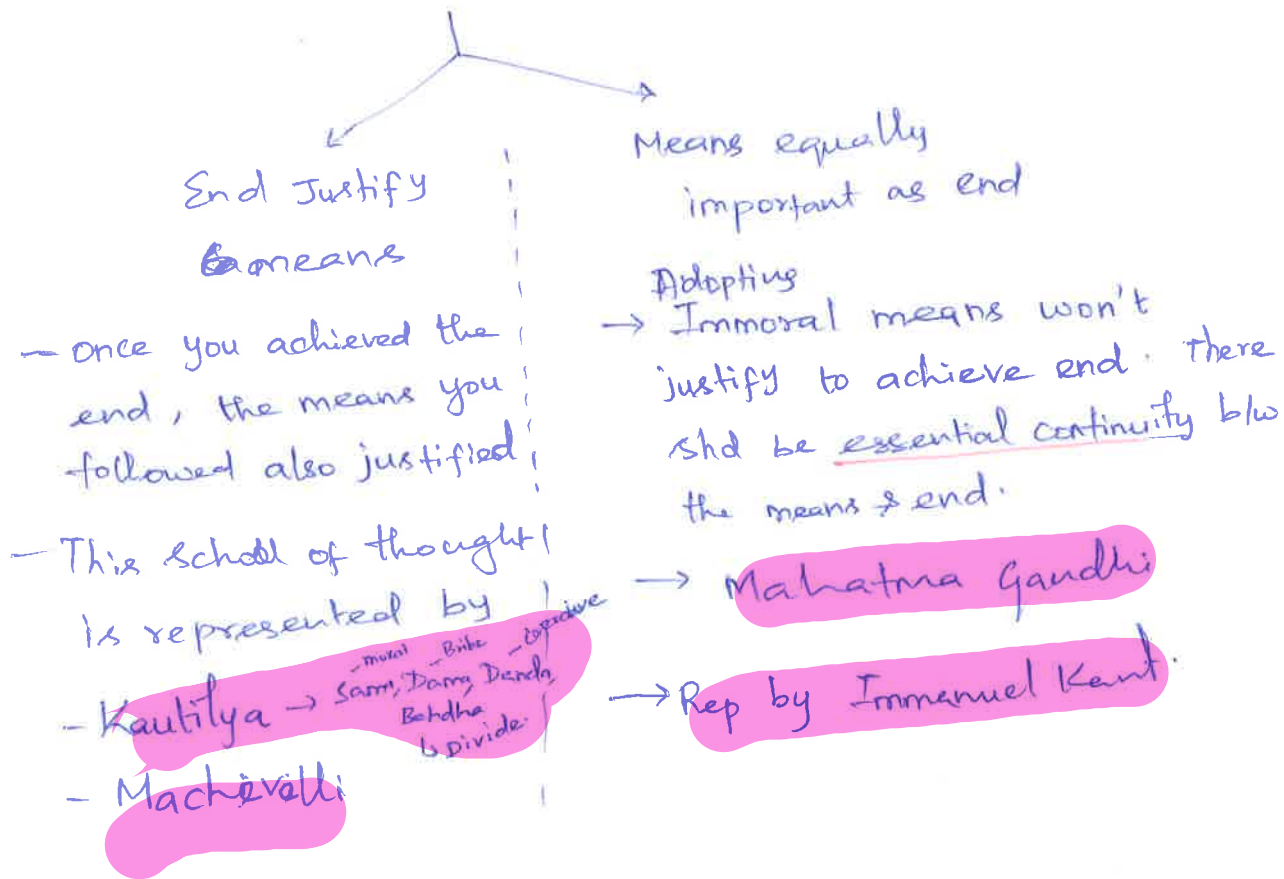 End Justify
means
- Once you achieved the
end, the means you
followed also justified
- This school of thought
is represented by
- Kautilya → Sam, Dama, Danda,
- moral - Bribe - coercive
Behdha
↳ Divide.
- Machevelli
Means equally
important as end
Adopting
→ Immoral means won't
justify to achieve end. There
shd be essential continuity b/w
the means & end.
→ Mahatma Gandhi
→ Rep by Immanuel Kant.